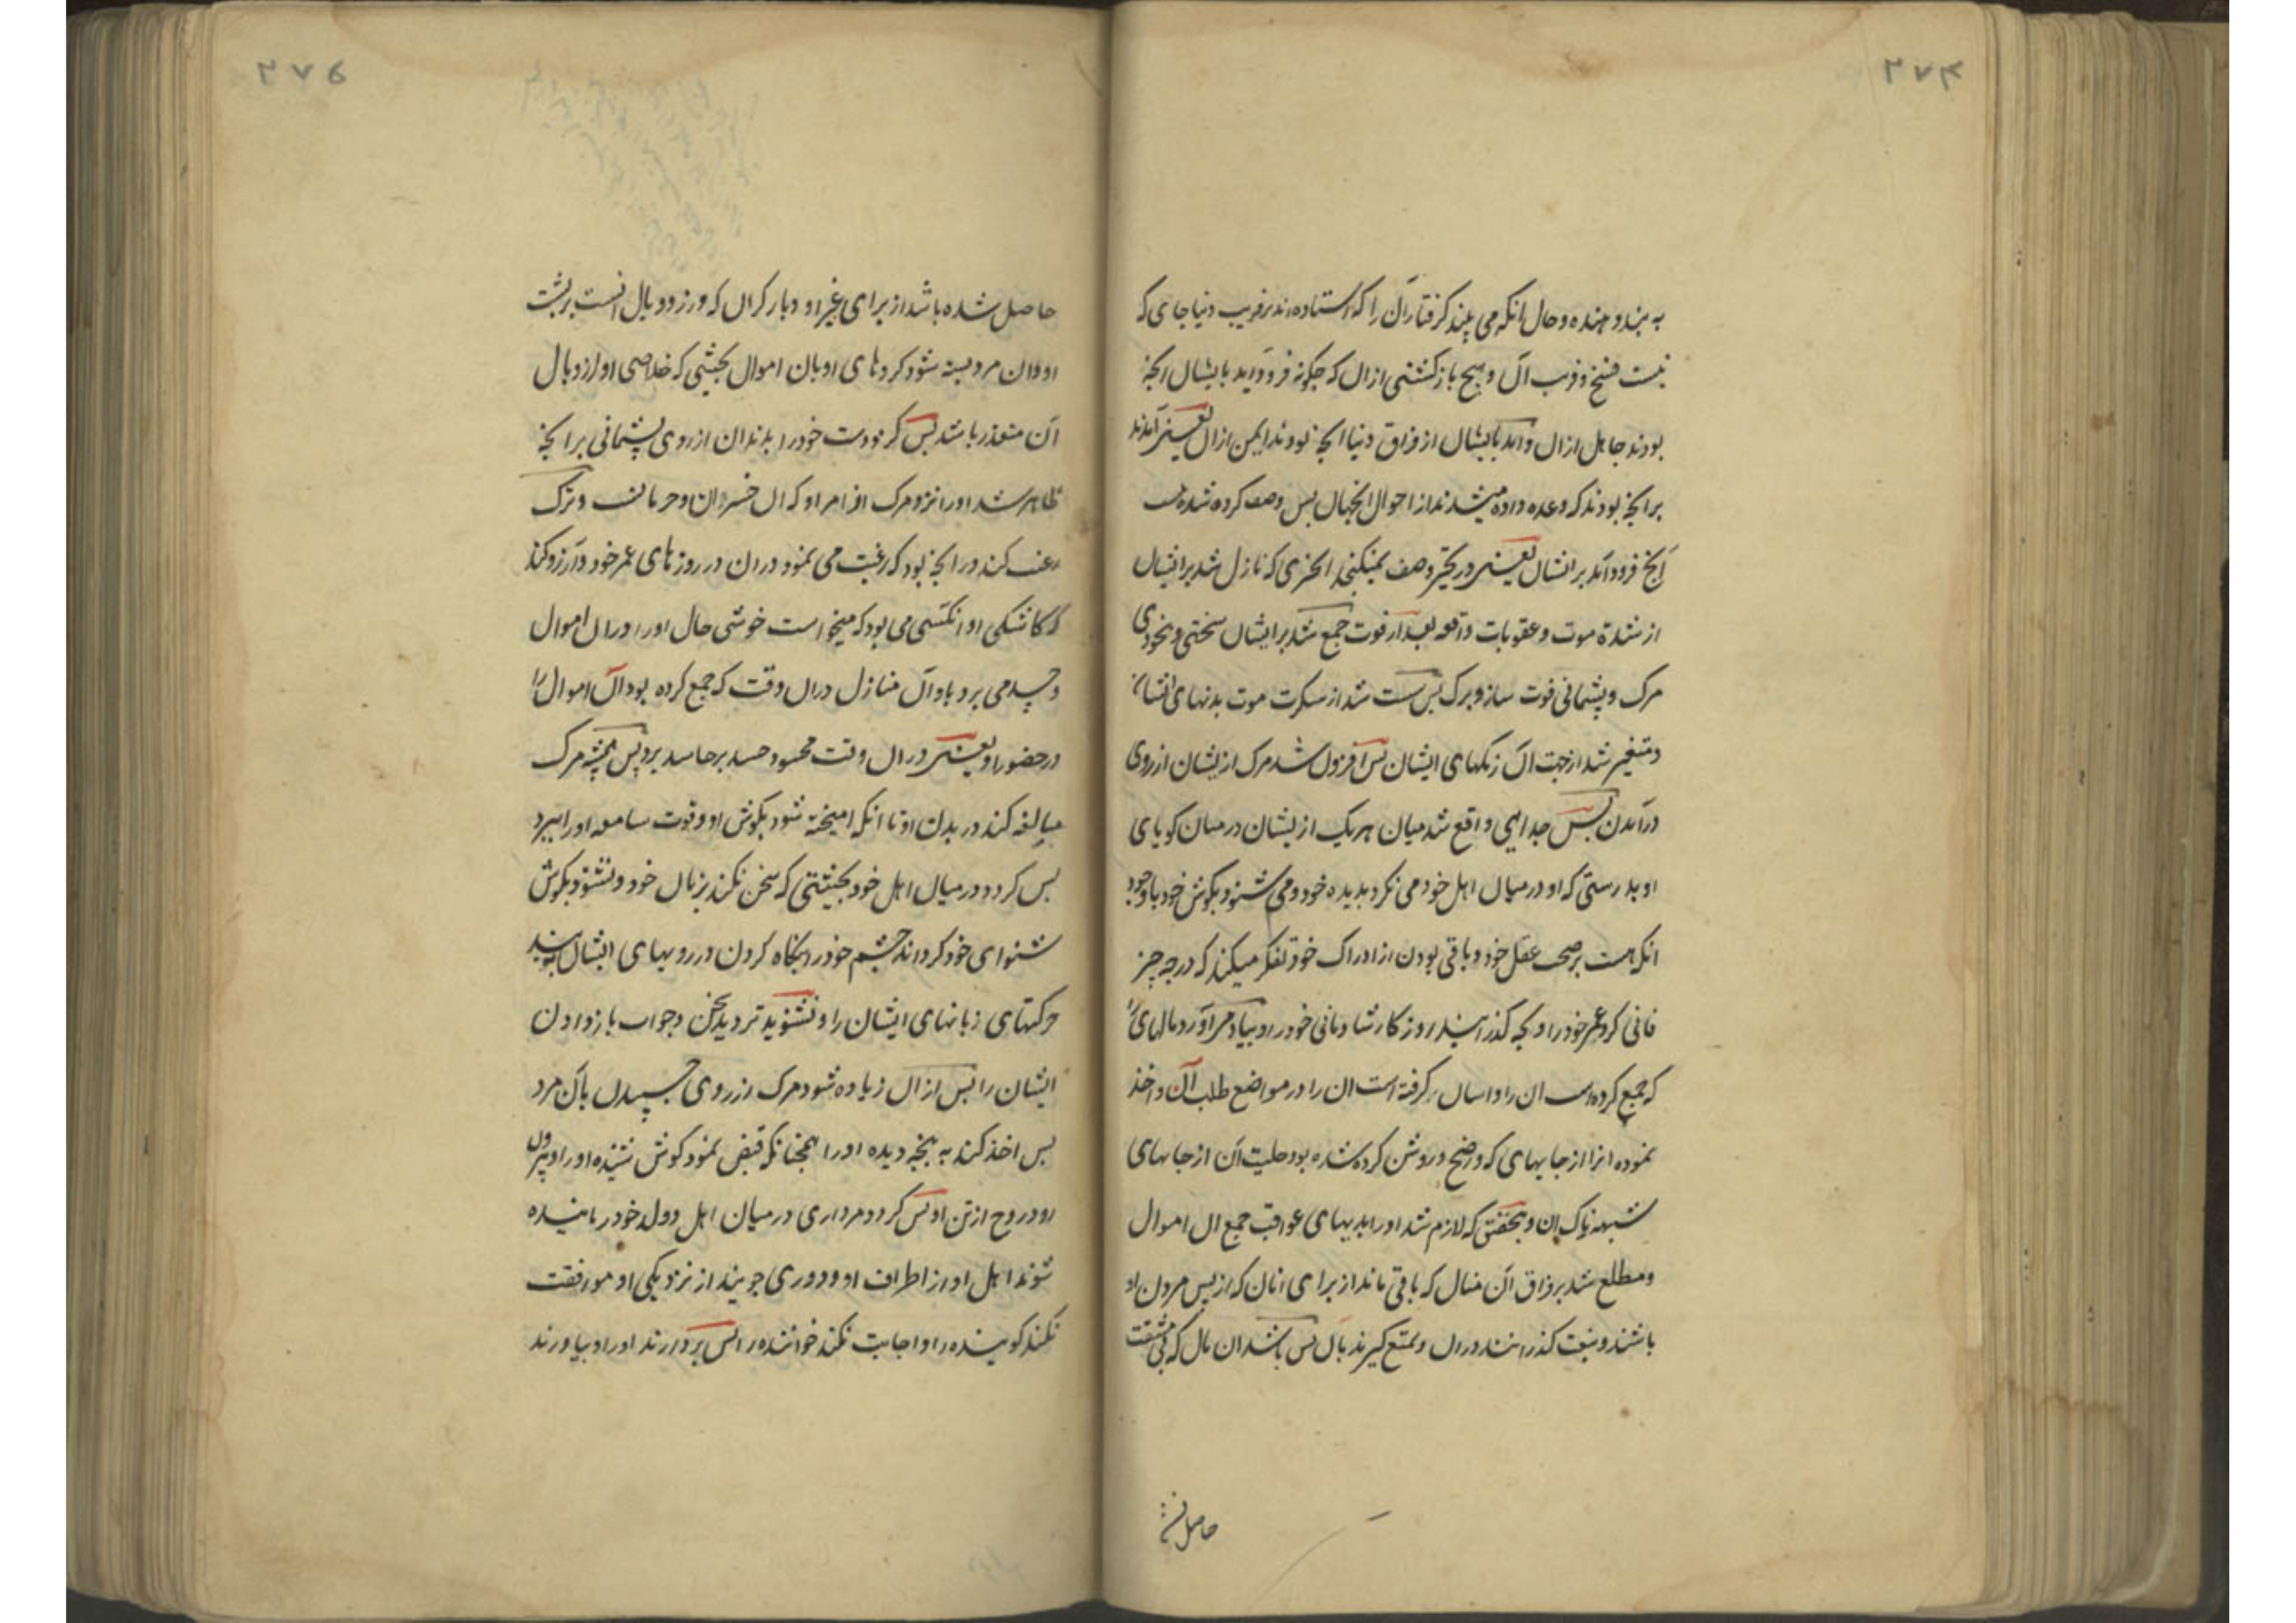 ۲۷۴
به پند دهنده و حال انکه می بیند کرفتاران را که استاده اند بر فریب دنیا جای که
نیست فسخ و فریب آن و هیچ باز کشتنی ازان که چکونه فرود آید بایشان انچه
بودند جاهل ازان و آمد بایشان از فراق دنیا انچه بودند ایمن ازان یعنی آمدند
بر انچه بودند که وعده داده میشدند از احوال انجهان پس وصف کرده نشده است
آنچ فرود آمد بر ایشان یعنی در تحیر وصف نمیکنجد انچیزی که نازل شد بر ایشان
از شدة موت و عقوبات واقعه بعد از فوت جمع شد بر ایشان سختی و بیخودی
مرک و پشیمانی فوت ساز و برک پس سست شد از سکرت موت بدنهای ایشان
و متغیر شد از جهت آن رنکهای ایشان پس افزون شد مرک از ایشان از روی
درآمدن پس جدایی واقع شد میان هر یک از ایشان در میان کویای
او بدرستی که او در میان اهل خود می نکرد بدیده خود و می شنود بکوش خود با وجود
انکه هست بر صحت عقل خود و باقی بودن از ادراک خود تفکر میکند که در چه چیز
فانی کرد عمر خود را و بچه کذرانید روزکار شادمانی خود را و بیاد می آورد مالهای را
که جمع کرده است ان را و اسان کرفته است ان را در مواضع طلب آن و اخذ
نموده انرا از جایهای که واضح و روشن کرده شده بود حلیت آن از جایهای
شبهه ناک ان و بتحقیق که لازم شد او را بدیهای عواقب جمع ان اموال
و مطلع شد بر فراق آن منال که باقی ماند از برای انان که از پس مردن او
باشند و بنعمت کذرانند دران و تمتع کیرند بآن پس باشد ان مال که بی مشقت
حاصل شده
۲۷۵
حاصل شده باشد از برای غیر او و بار کران که وزر و وبال انست بر پشت
او و ان مرد بسته شود کروهای او بان اموال بحیثی که خلاصی او از وبال
آن متعذر باشد پس کزد دست خود را بدندان از روی پشیمانی بر انچه
ظاهر شد او را نزد مرک از امر او که ان خسران و حرمانست و ترک
رغبت کند در انچه بود که رغبت می نمود دران در روزهای عمر خود و آرزو کند
که کاشکی او انکسی می بود که میخواست خوشی حال او را دران اموال
و حسد می برد باو آن منازل دران وقت که جمع کرده بود آن اموال را
در حضور او یعنی دران وقت محسود حسد بر حاسد برد پس همیشه مرک
مبالغه کند در بدن او تا انکه امیخته شود بکوش او و قوت سامعه او را ببرد
پس کردد در میان اهل خود بحیثیتی که سخن نکند بزبان خود و نشنود بکوش
شنوای خود کرداند چشم خود را بنکاه کردن در رویهای ایشان بیند
حرکتهای زبانهای ایشان را و نشنوید تردید سخن و جواب باز دادن
ایشان را پس ازان زیاده شود مرک از روی چسپیدن بآن مرد
پس اخذ کند به پنجه دیده او را همچنانکه قبض نمود کوش شنیده او را و بیرون
رود روح از تن او پس کردد مرداری در میان اهل و ولد خود رمانیده
شوند اهل او از اطراف او و دوری جویند از نزدیکی او موافقت
نکند کوینده را و اجابت نکند خواننده را پس بردارند او را و بیاورند